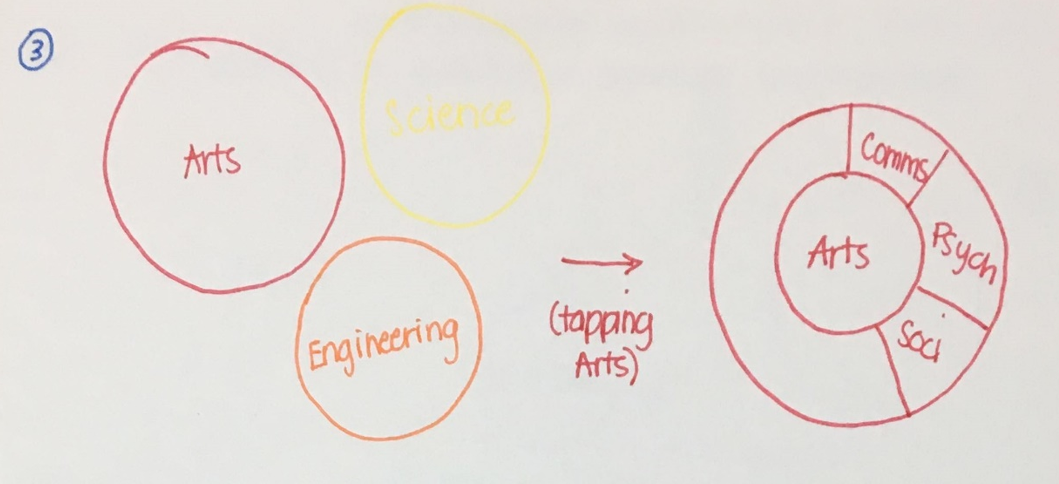 3
Arts
Science
Engineering
(tapping
Arts)
Arts
Comms
Psych
Soci